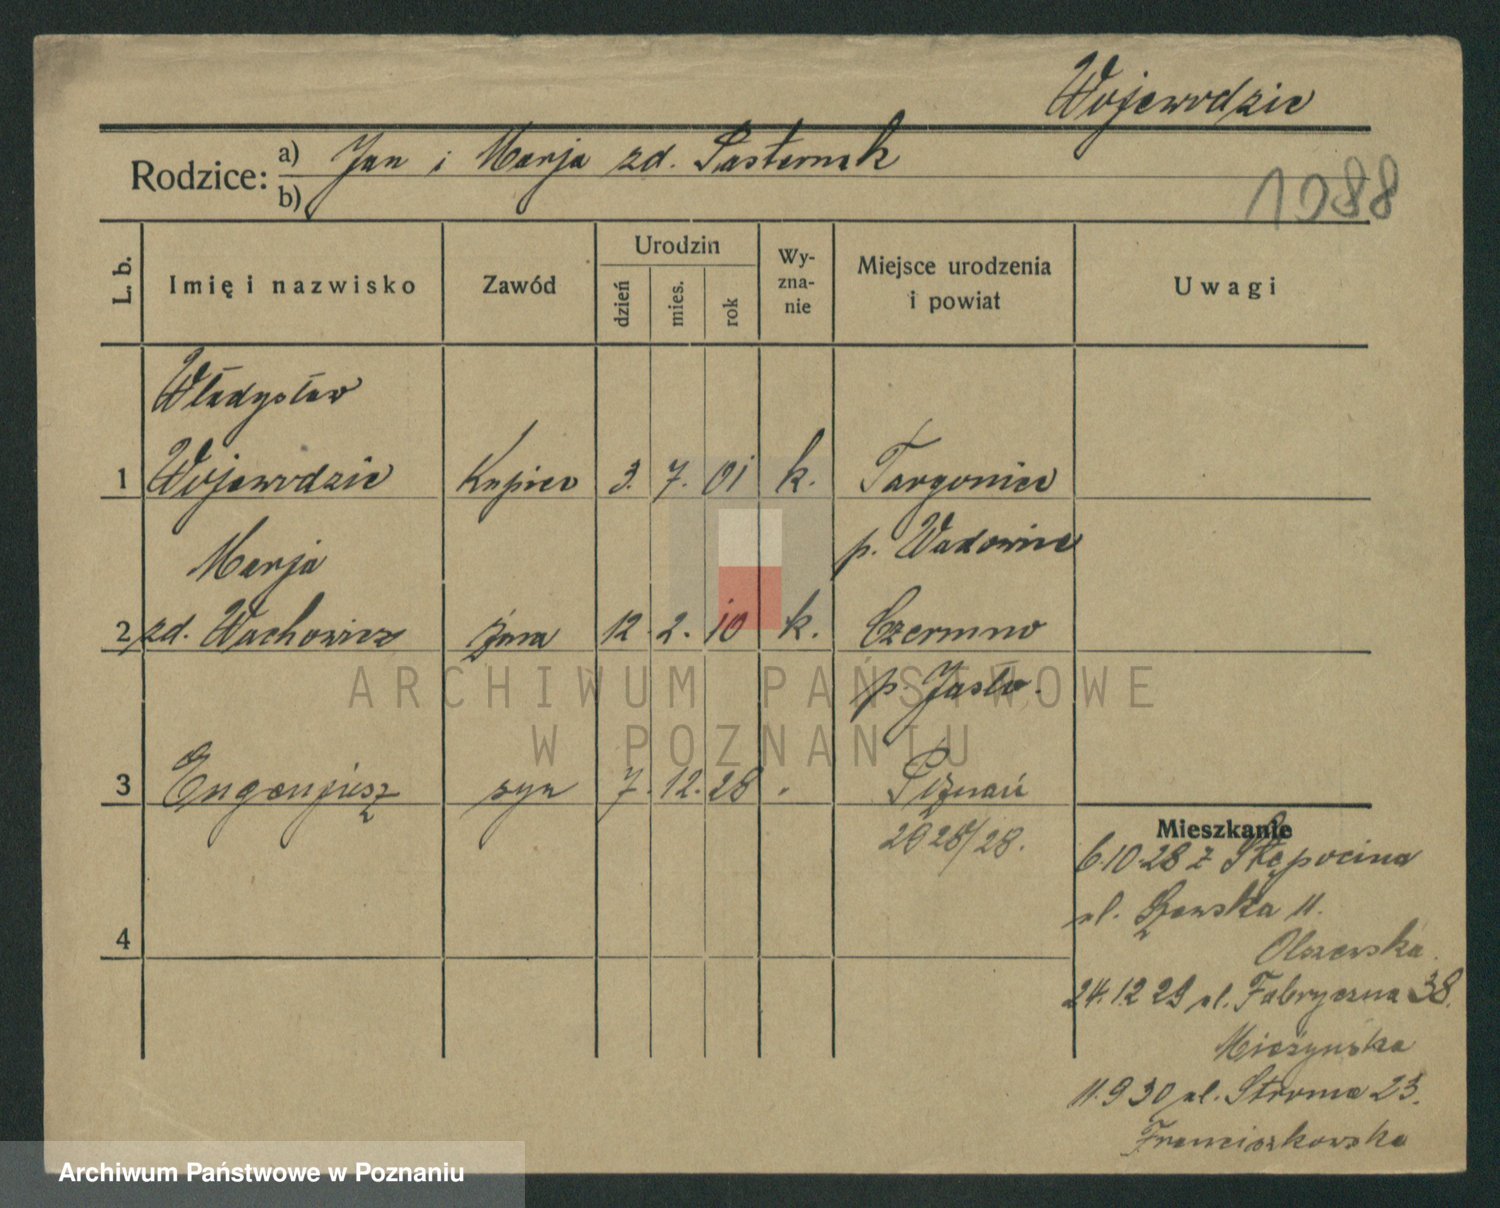 Wojewodzic
Rodzice: a) Jan i Marja zd. Pasternak
b)
1988
L. b.
Imię i nazwisko
Zawód
Urodzin
dzień
mies.
rok
Wy-
zna-
nie
Miejsce urodzenia
i powiat
Uwagi
Władysław
1 Wojewodzic Kupiec 3. 7. 01 k. Targonice
p. Wadowice
Marja
2 zd. Wachowicz żona 12. 2. 10 k. Czermno
p. Jasło.
3 Eugenjusz syn 7. 12. 28 . Poznań
/28.
4
Mieszkanie
6.10.28 z
ul. 11.
Olszewska.
24.12 29 ul. Fabryczna 38.
11.9 30 ul. Stroma 23.
Franciszkowska
ARCHIWUM PAŃSTWOWE
W POZNANIU
Archiwum Państwowe w Poznaniu